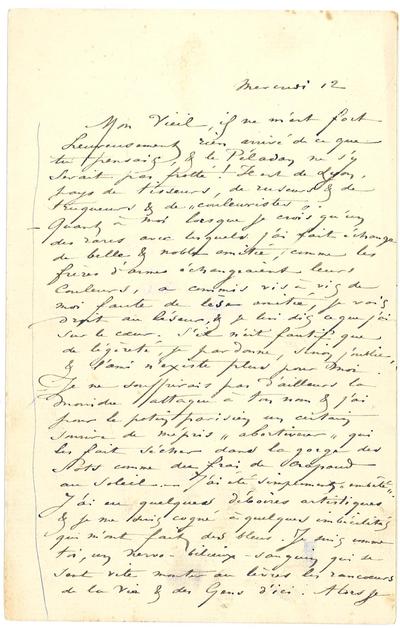 Mercredi 12
Mon Vieil, il ne m'est fort
heureusement rien arrivé de ce que
tu pensais, & le Péladan ne s'y
serait pas frotté ! Il est de Lyon,
pays de tisseurs, de ruseurs & de
truqueurs & de "couleuristes".
Quant à moi lorsque je crois qu'un
des rares avec lesquels j'ai fait échange
de belle & noble amitié, comme les
frères d'armes échangeaient leurs
couleurs, a commis vis à vis de
moi faute de lèse amitié, je vais
droit au léseur, & je lui dis ce que j'ai
sur le cœur. S'il n'est fautif que
de légèreté je pardonne, sinon j'oublie,
& l'ami n'existe plus pour moi.
Je ne souffrirais pas d'ailleurs la
moindre attaque à ton nom & j'ai
pour le potin parisien un certain
sourire de mépris "abortiveur" qui
les fait sécher dans la gorge des
sots comme du frai de crapaud
au soleil. J'ai été simplement "embêté".
J'ai eu quelques déboires artistiques
& je me suis cogné à quelques imbéciles
qui m'ont fait des bleus. Je suis comme
toi, un nervo-bilieux-sanguin qui se
sent vite monter au lèvres les rancœurs
de la Vie & des Gens d'ici. Alors je